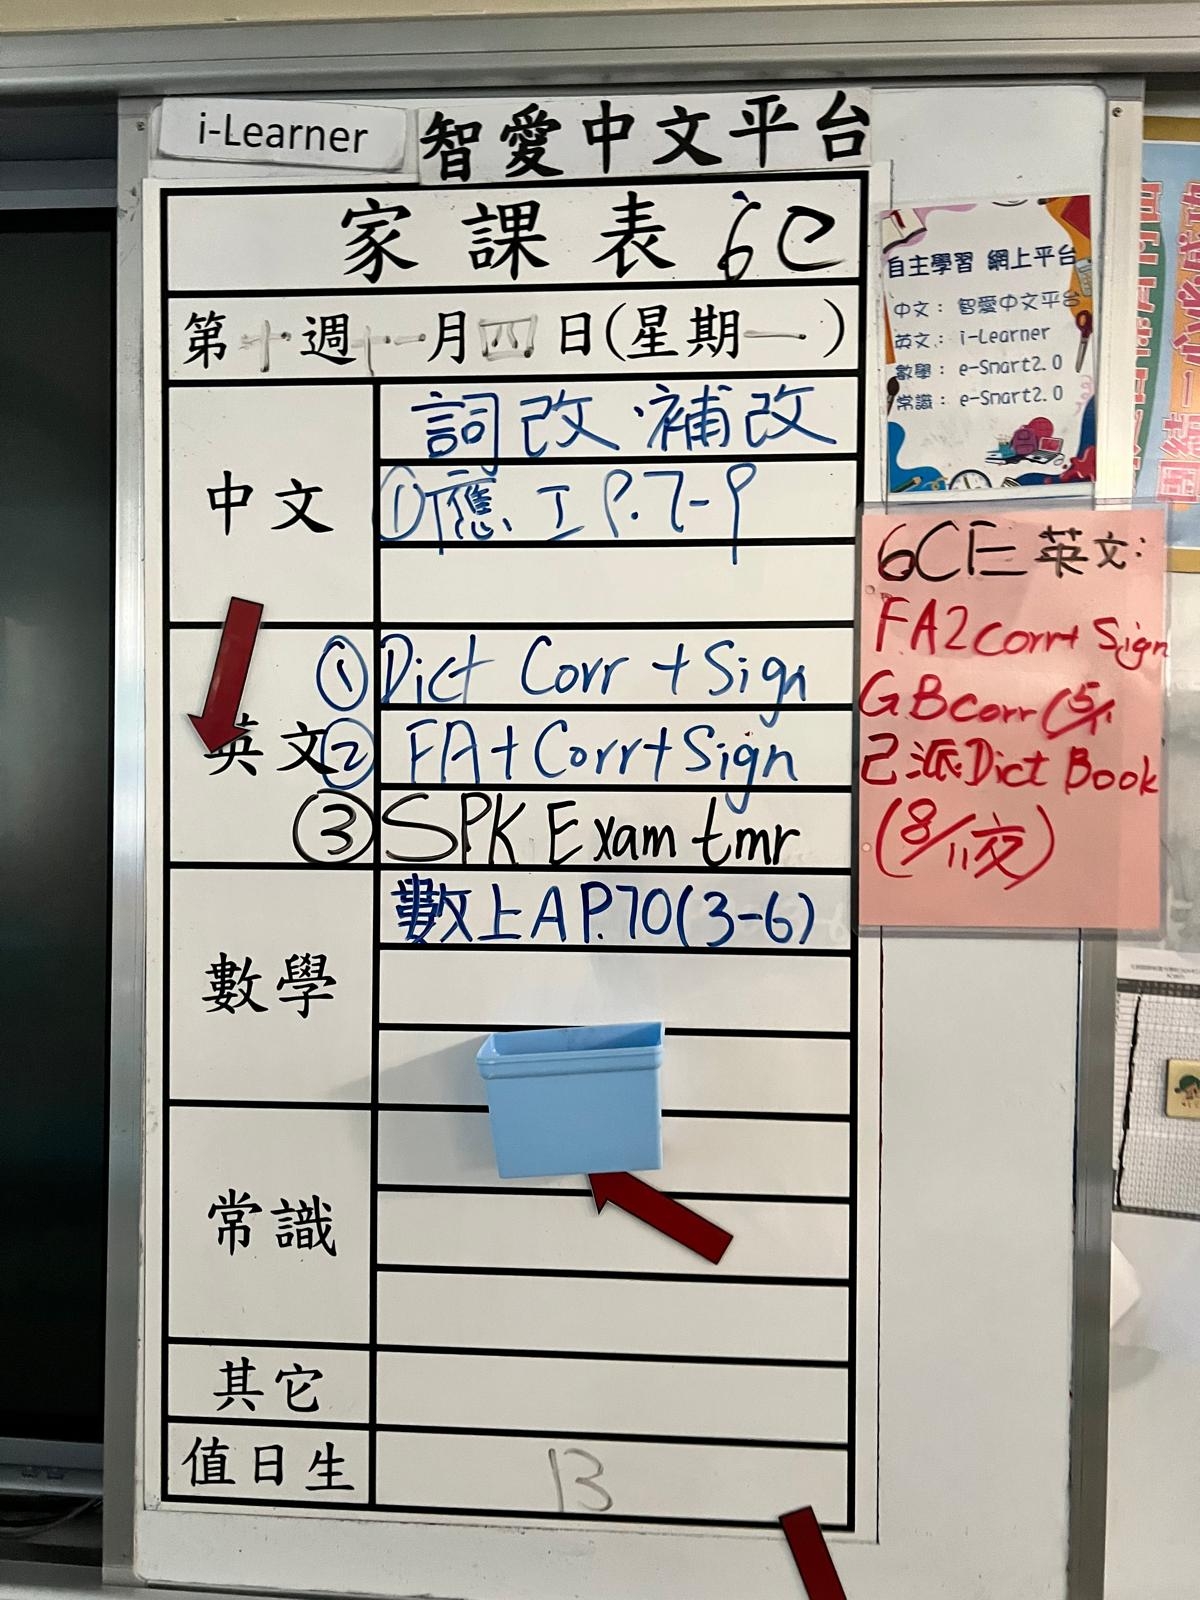 i-Learner 智愛中文平台
家課表 6C
第十週十一月四日(星期一)
中文
詞改、補改
①應、工 P.7-9
英文
① Dict Corr + Sign
② FA + Corr + Sign
③ SPK Exam tmr
數學
數上A P.70(3-6)
常識
其它
值日生
13
自主學習 網上平台
中文： 智愛中文平台
英文： i-Learner
數學： e-Smart2.0
常識： e-Smart2.0
6CE 英文：
FA2 corr + Sign
GB corr (5/11
已派 Dict Book
(8/11交)